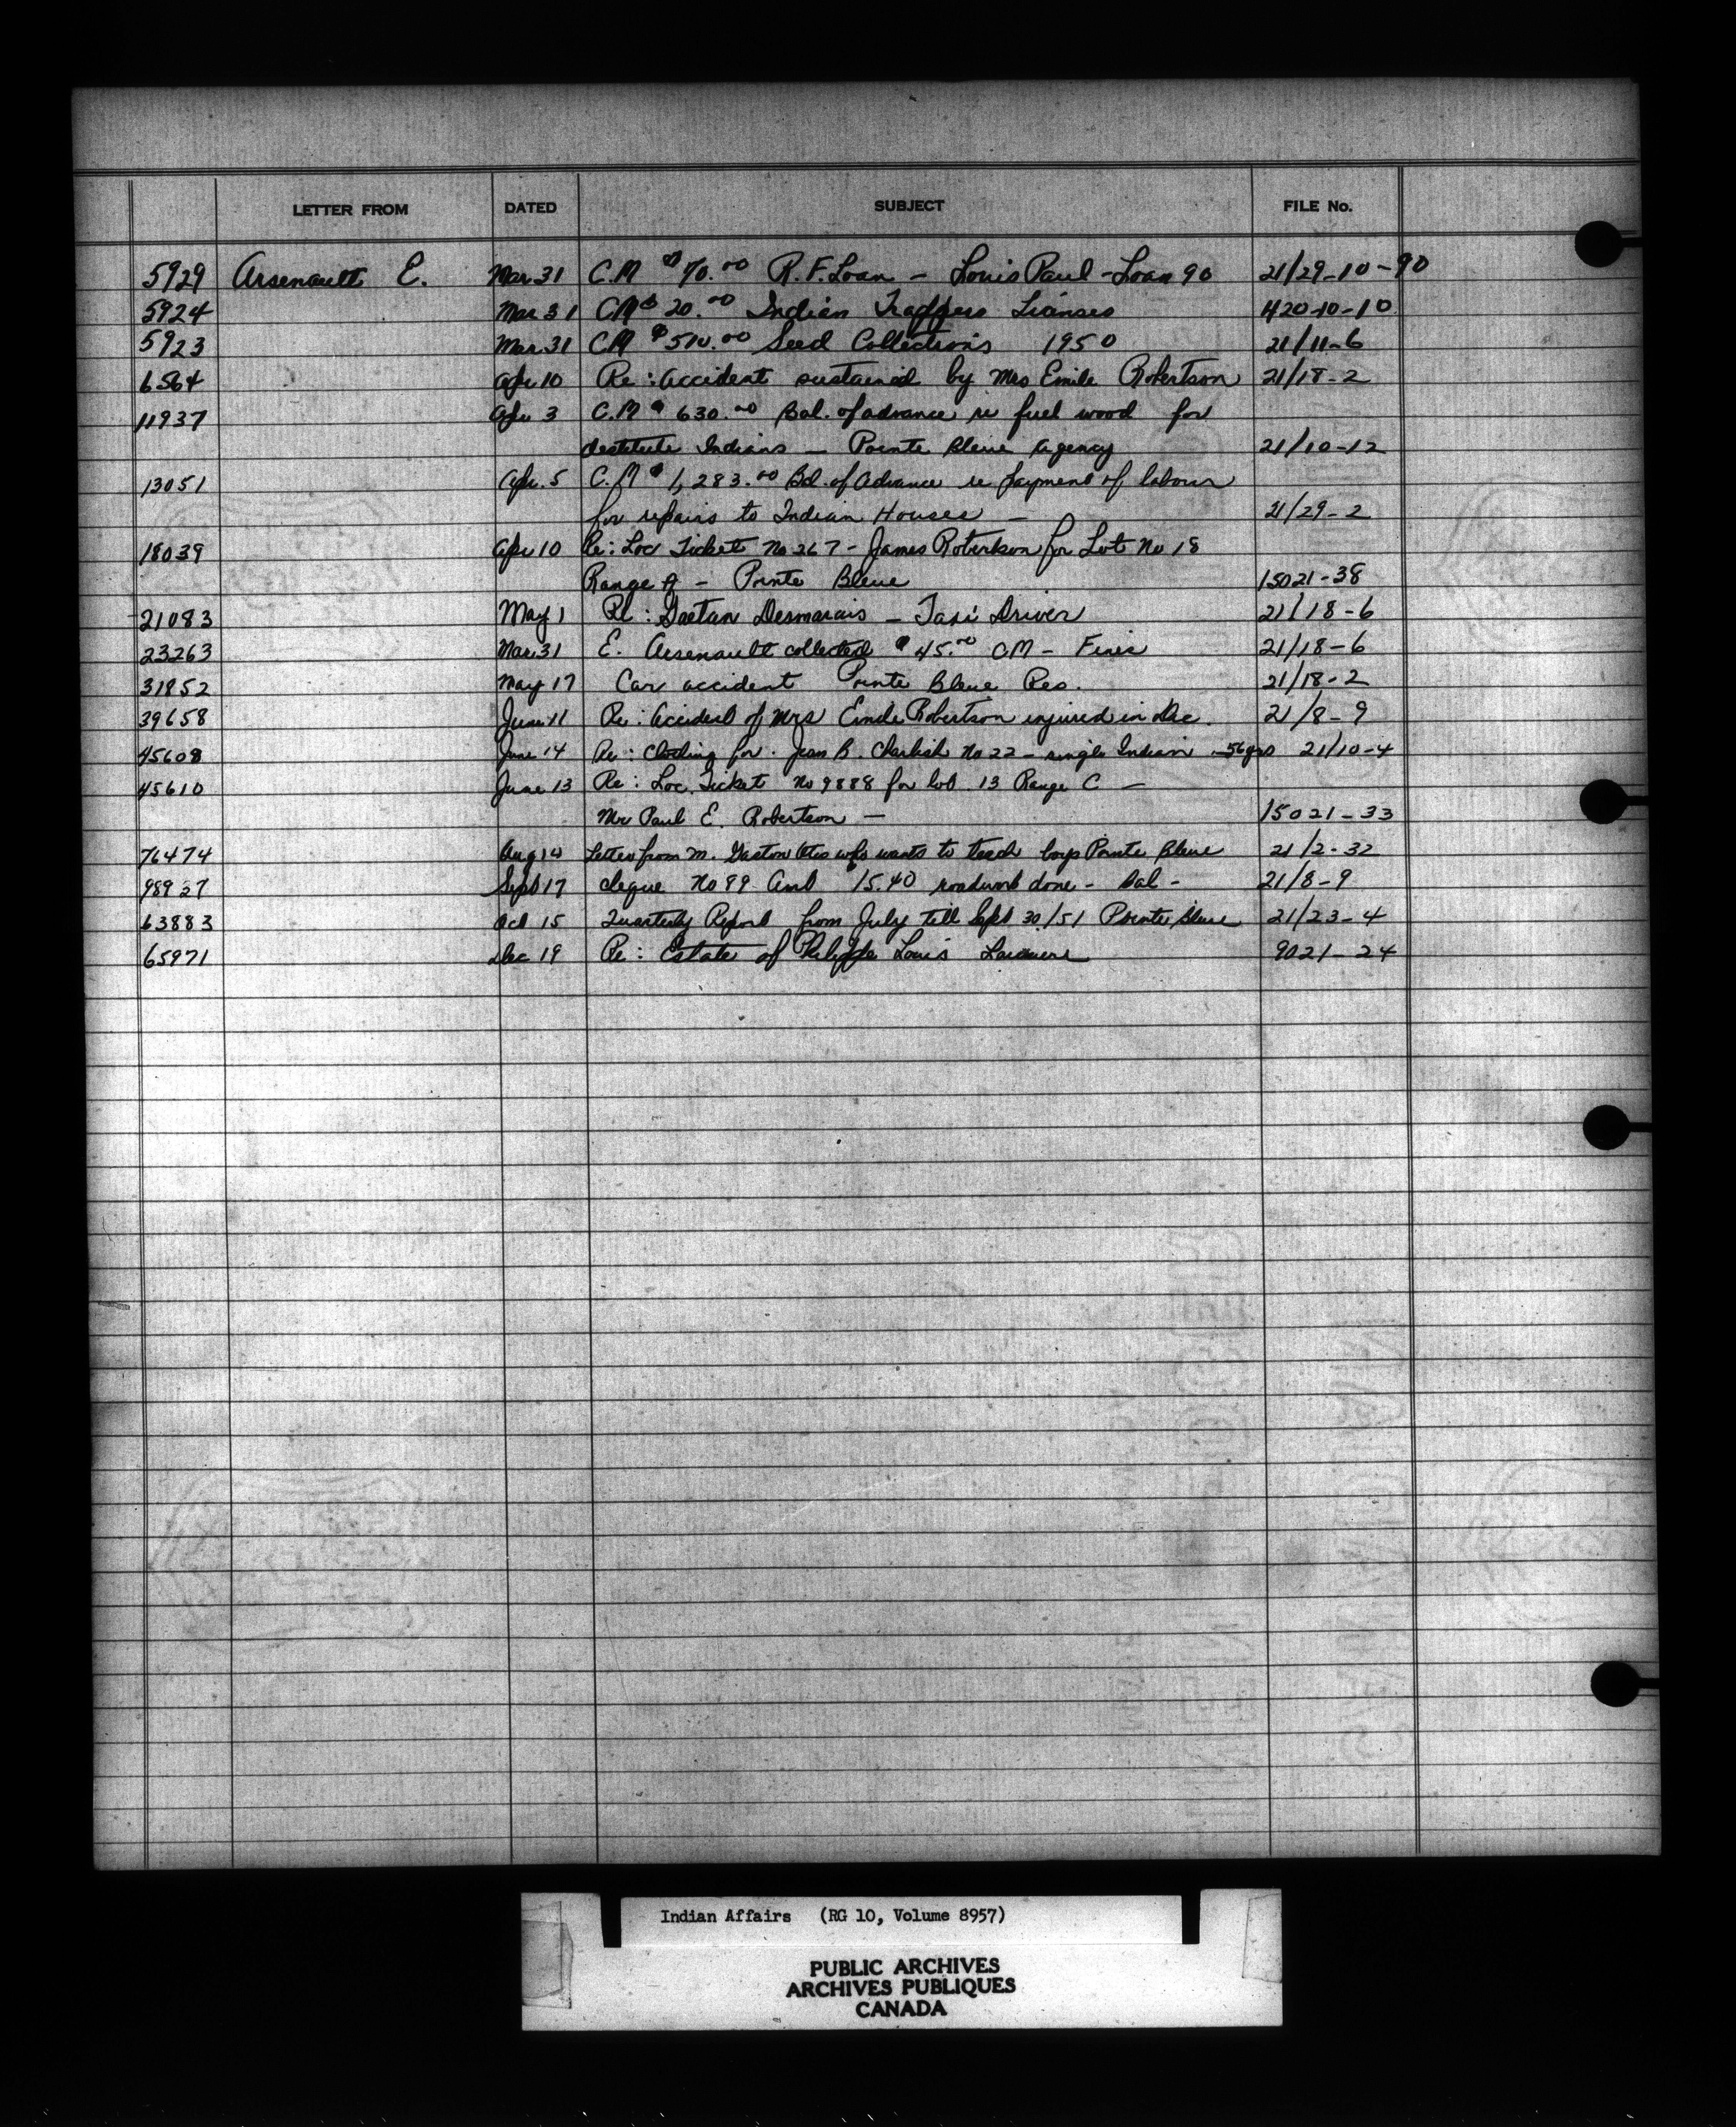 LETTER FROM DATED SUBJECT FILE No.
5929 Arsenault E. Mar. 31 C.M $70.00 R.F. Loan - Louis Paul - Loan 90 21/29-10-90
5924 Mar 31 CM $20.00 Indian Trappers Licenses 420-10-10
5923 Mar. 31 CM $510.00 Seed Collections 1950 21/11-6
6564 Apr 10 Re: Accident sustained by Mrs Emile Robertson 21/18-2
11937 Apr 3 C.M $630.00 Bal. of advance re fuel wood for
destitute Indians - Pointe Bleue Agency 21/10-12
13051 Apr. 5 C.M $1,283.00 Bal. of Advance re payment of labour
for repairs to Indian Houses - 21/29-2
18039 Apr 10 Re: Loc Ticket No 267 - James Robertson for Lot No 18
Range A - Pointe Bleue 15021-38
21083 May 1 Re: Gaetan Desmarais - Taxi Driver 21/18-6
23263 Mar. 31 E. Arsenault collected $45.00 CM - Fines 21/18-6
31852 May 17 Car accident Pointe Bleue Res. 21/18-2
39658 June 11 Re: Accident of Mrs Emile Robertson injured in Dec. 21/8-9
45608 June 14 Re: Clothing for Jean B. Charlish No 22 - single Indian - 56 yrs 21/10-4
45610 June 13 Re: Loc. Ticket No 9888 for lot 13 Range C -
Mr Paul E. Robertson - 15021-33
76474 Aug 14 Letter from M. Gaston Otis who wants to teach boys Pointe Bleue 21/2-32
98927 Sept 17 cheque No 89 Amt 15.40 roadwork done - Bal - 21/8-9
63883 Oct 15 Quarterly Report from July till Sept 30/51 Pointe Bleue 21/23-4
65971 Dec 19 Re: Estate of Philippe Louis 9021-24
Indian Affairs (RG 10, Volume 8957)
PUBLIC ARCHIVES
ARCHIVES PUBLIQUES
CANADA